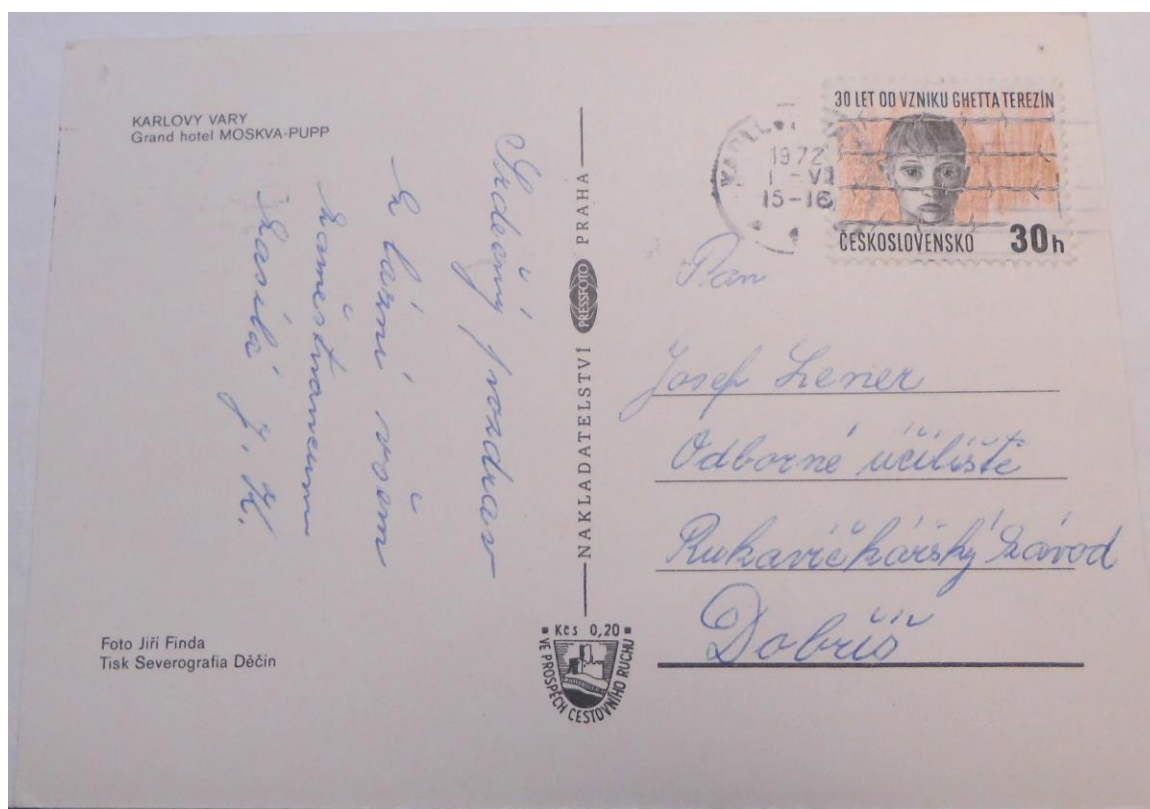 KARLOVY VARY
Grand hotel MOSKVA-PUPP
Srdečný pozdrav
z lázní všem
zaměstnancům
zasílá J. K.
Foto Jiří Finda
Tisk Severografia Děčín
NAKLADATELSTVÍ PRESSFOTO PRAHA
Kčs 0,20
VE PROSPĚCH CESTOVNÍHO RUCHU
30 LET OD VZNIKU GHETTA TEREZÍN
ČESKOSLOVENSKO 30h
1972
15-16
Pan
Josef Lener
Odborné účiliště
Rukavičkářský závod
Dobříš